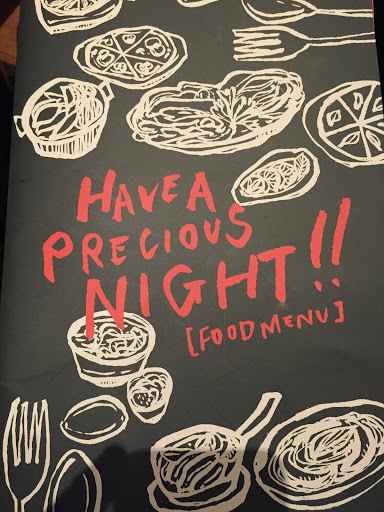 HAVE A
PRECIOUS
NIGHT!!
[FOOD MENU]